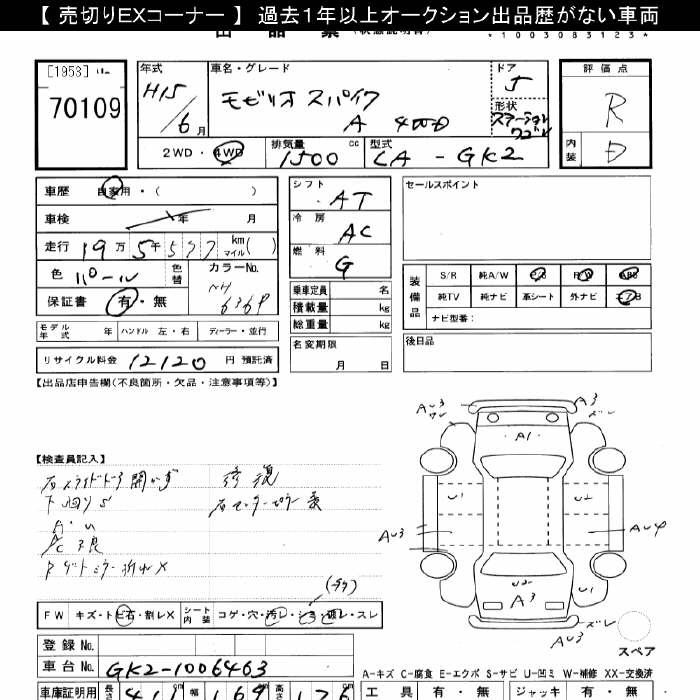 【 売切りEXコーナー 】 過去1年以上オークション出品歴がない車両
*1003083123*
[1953]
70109
年式
H15/6月
車名・グレード
モビリオ スパイク
A 4WD
ドア 5
形状
ステーションワゴン
2WD・4WD
排気量 1500 cc
型式 LA-GK2
評価点
R
内装
D
車歴 自家用・( )
車検 年 月
走行 19万5千577 km マイル( )
色 パール
色替
カラーNo.
NH 636P
保証書 有・無
モデル年式 年 ハンドル 左・右 ディーラー・並行
リサイクル料金 12120 円 預託済
シフト AT
冷房 AC
燃料 G
乗車定員 名
積載量 kg
総重量 kg
名変期限
月 日
セールスポイント
装備品
S/R 純A/W P/S P/W ABS
純TV 純ナビ 革シート 外ナビ エアB
ナビ型番：
後日品
【出品店申告欄(不良箇所・欠品・注意事項等)】
【検査員記入】
右スライドドア開かず
下回りS
A・U
A/C不良
修復
右センターピラー
FW キズ・ト石・割レX
シート内装 コゲ・穴・汚レ・シミ・破レ・スレ
AU3
ズレ
A1
U1
U2
AU3
AU4
U2
A3
U1
AU3
ズレ
スペア
登録No.
車台No. GK2-1006463
A-キズ C-腐食 E-エクボ S-サビ U-凹ミ W-補修 XX-交換済
車庫証明用 長さ 411 幅 169 高さ 176
工具 有・無 ジャッキ 有・無